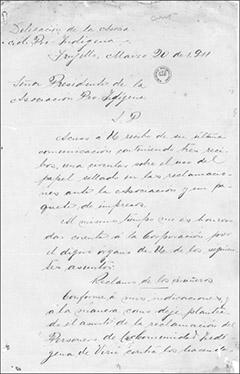 Delegación de la Asocia
ción Pro-Indígena
Trujillo, Marzo 20 de 1911
Señor Presidente de la
Asociación Pro Indígena
S. P.
Acuso a Ud recibo de su última
comunicación conteniendo tres reci
bos, una circular sobre el uso del
papel sellado en las reclamacio
nes ante la Asociación y un pa
quete de impresos.
Al mismo tiempo me es honroso
dar cuenta a la Corporación por
el digno órgano de Ud de los siguien
tes asuntos:
Reclamo de los
Conforme a mis indicaciones y
a la manera como dejé plantea
do el asunto de la reclamación del
Personero de la Comunidad indí
gena de Virú contra los hacenda